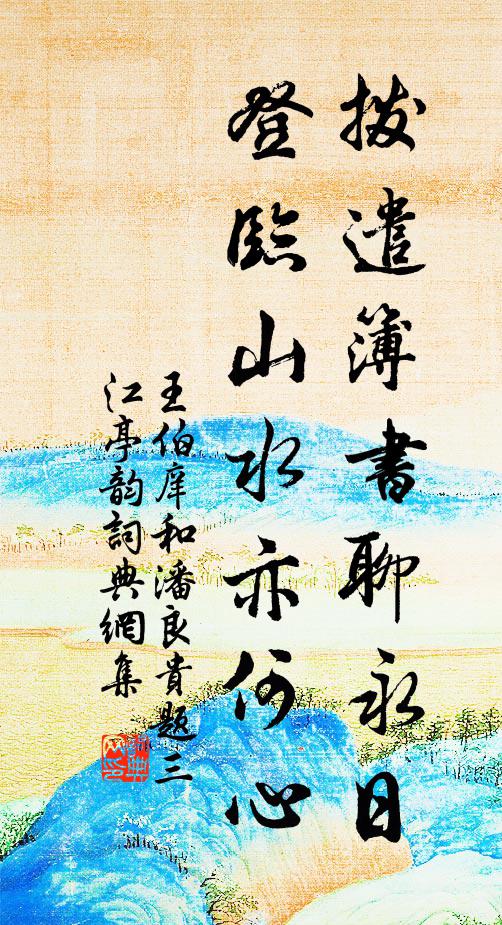 拨遣簿書聊永日
登臨山水亦何心
王伯庠和潘良貴題三
江亭韵詞典網集